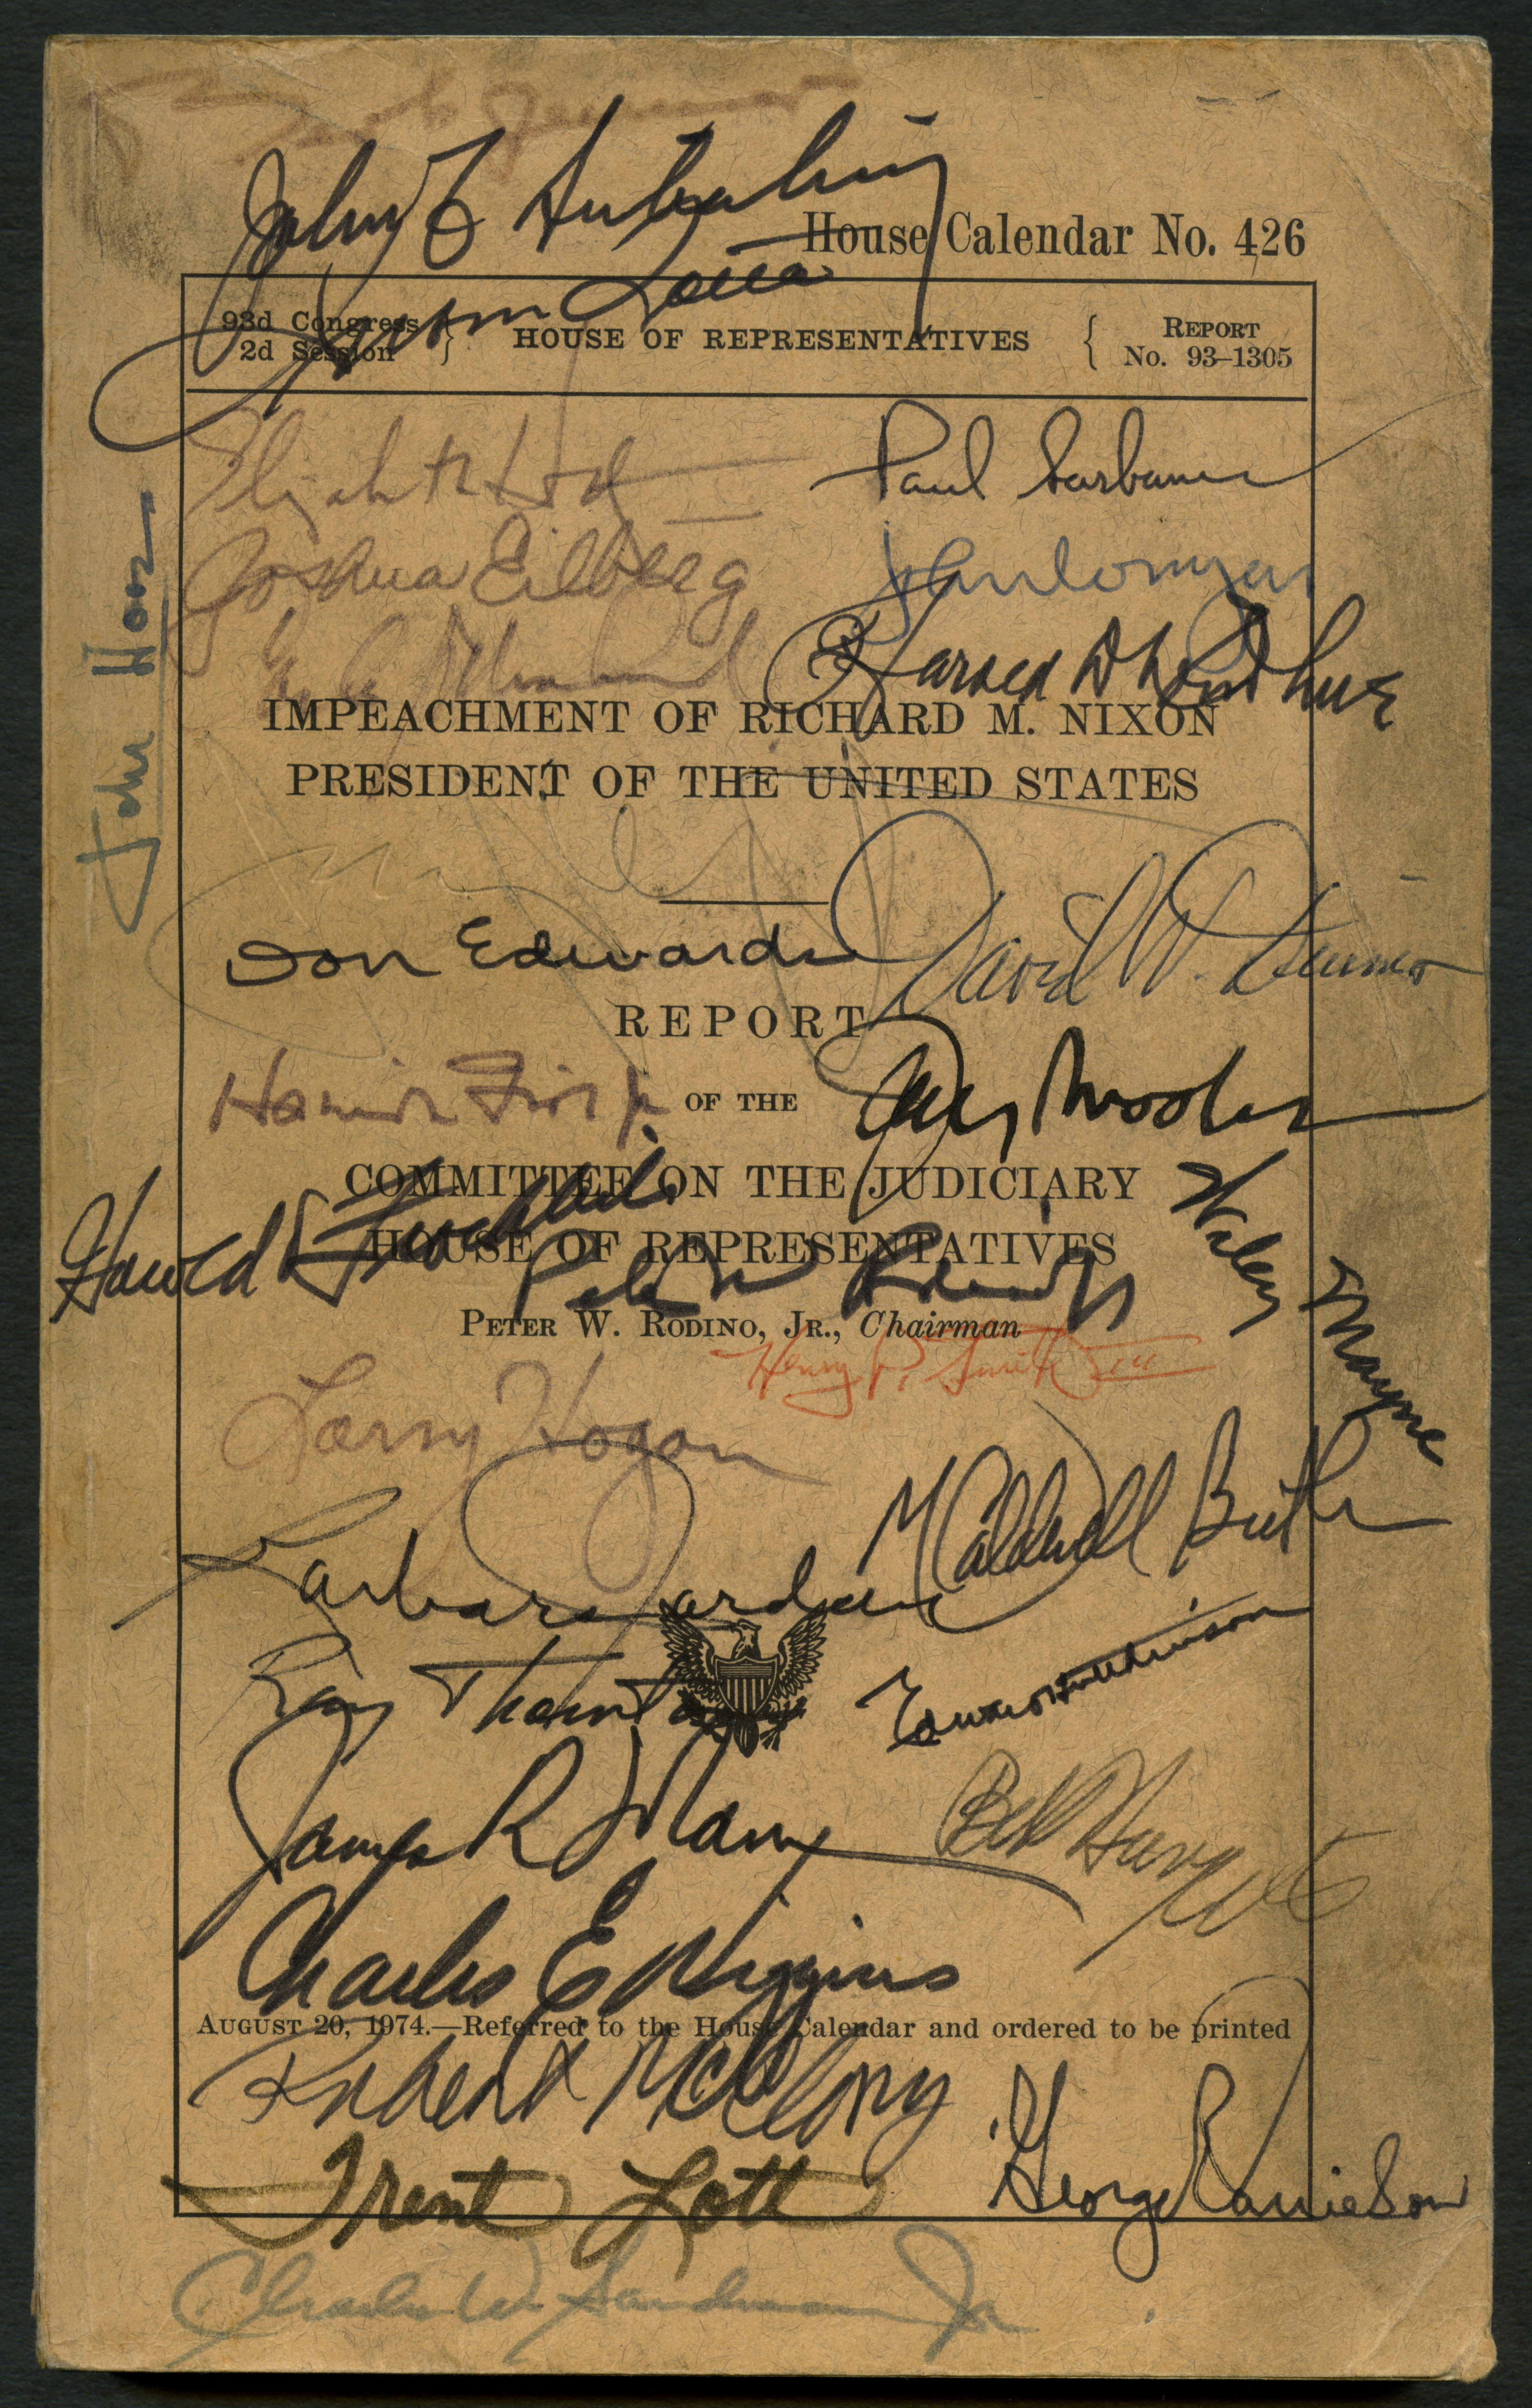 John F Seiberling
House Calendar No. 426
Delbert Latta
93d Congress 2d Session } HOUSE OF REPRESENTATIVES { REPORT No. 93–1305
Elizabeth Holtzman
Paul Sarbanes
Joshua Eilberg
John Conyers
Harold D Donohue
John Hoos
IMPEACHMENT OF RICHARD M. NIXON
PRESIDENT OF THE UNITED STATES
Don Edwards
David W. Dennis
REPORT
Hamilton Fish Jr
OF THE
Jack Brooks
COMMITTEE ON THE JUDICIARY
Harold V Froehlich
HOUSE OF REPRESENTATIVES
Wiley Mayne
Peter W Rodino Jr
PETER W. RODINO, JR., Chairman
Henry P. Smith III
Larry Hogan
M Caldwell Butler
Barbara Jordan
Ray Thornton
Edward Hutchinson
James R Mann
Charles E Wiggins
AUGUST 20, 1974.—Referred to the House Calendar and ordered to be printed
Robert McClory
George Danielson
Trent Lott
Charles W. Sandman Jr